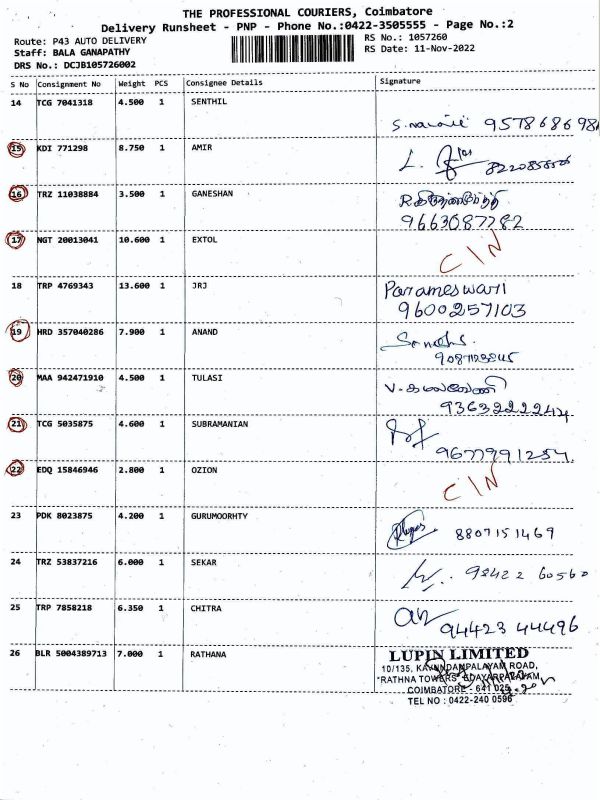 THE PROFESSIONAL COURIERS, Coimbatore
Delivery Runsheet - PNP - Phone No.:0422-3505555 - Page No.:2
Route: P43 AUTO DELIVERY
RS No.: 1057260
Staff: BALA GANAPATHY
RS Date: 11-Nov-2022
DRS No.: DCJB105726002
S No Consignment No Weight PCS Consignee Details Signature
14 TCG 7041318 4.500 1 SENTHIL
15 KDI 771298 8.750 1 AMIR
L.
16 TRZ 11038884 3.500 1 GANESHAN
9663087782
17 NGT 20013041 10.600 1 EXTOL
CIN
18 TRP 4769343 13.600 1 JRJ Parameswari
9600257103
19 HRD 357040286 7.900 1 ANAND
20 MAA 942471910 4.500 1 TULASI
21 TCG 5035875 4.600 1 SUBRAMANIAN
9677991254
22 EDQ 15846946 2.800 1 OZION
CIN
23 PDK 8023875 4.200 1 GURUMOORHTY 8807151469
24 TRZ 53837216 6.000 1 SEKAR 98422 60560
25 TRP 7858218 6.350 1 CHITRA
94423 44496
26 BLR 5004389713 7.000 1 RATHANA LUPIN LIMITED
10/135, KAVUNDANPALAYAM ROAD,
"RATHNA TOWERS" UDAYARPALAYAM,
COIMBATORE - 641 025
TEL NO : 0422-240 0596